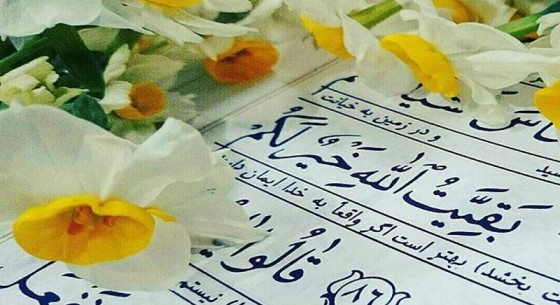 و در زمین به خیانت
بَقِيَّتُ اللّٰهِ خَيْرٌ لَكُمْ
بخشد) بهتر است اگر واقعاً به خدا ایمان
﴿۸۶﴾ قالُوا
نیستم